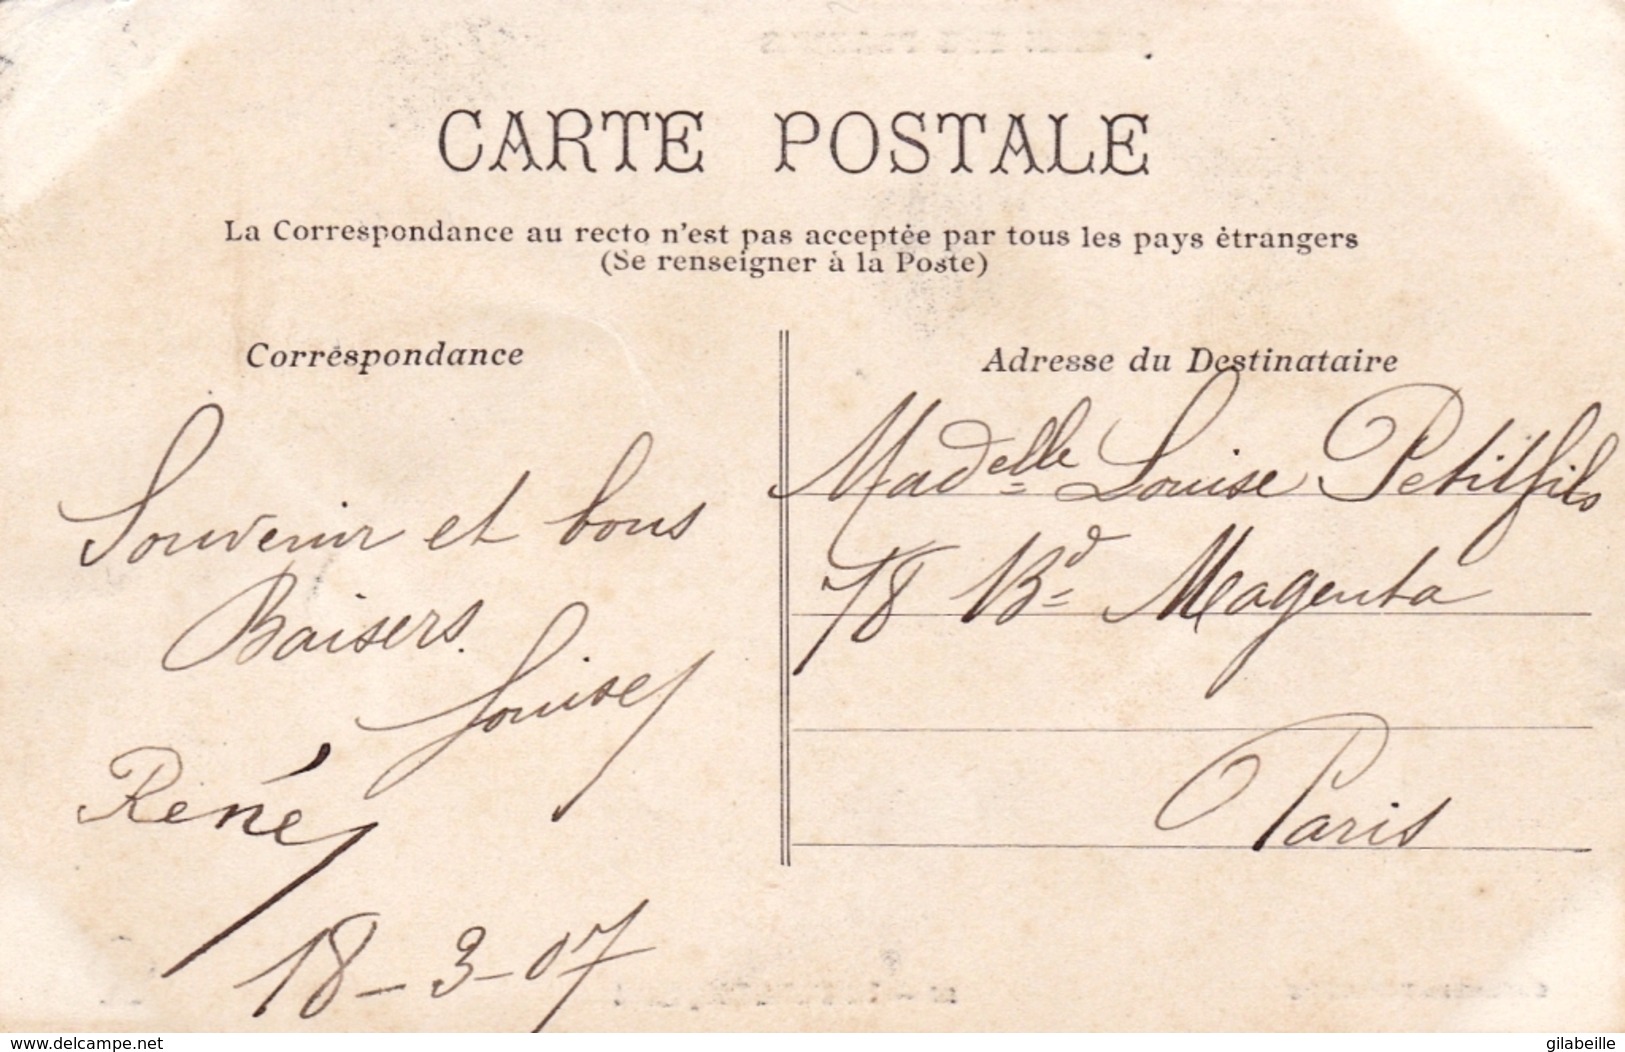 CARTE POSTALE
La Correspondance au recto n'est pas acceptée par tous les pays étrangers
(Se renseigner à la Poste)
Correspondance
Souvenir et bons
Baisers.
Louise
René
18-3-07
Adresse du Destinataire
Madelle Louise Petitfils
78 Bd Magenta
Paris
www.delcampe.net
gilabeille